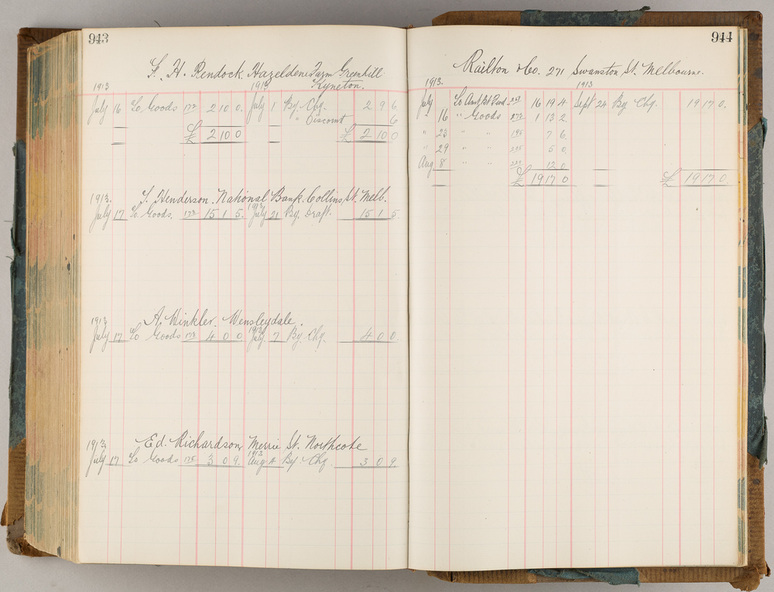 943
F. H. Pendock Hazeldene Farm Greenhill
Kyneton.
1913
July 16 To Goods 2 10 0. July 1 By Chq. 2 9 6
" Discount 6
£ 2 10 0 £ 2 10 0
T. Henderson. National Bank. Collins St. Melb.
1913 1913
July 17 To Goods. 15 1 5. July 21 By Draft. 15 1 5
A. Winkler. Wensleydale.
1913 1913
July 17 To Goods 4 0 0 July 7 By Chq. 4 0 0
Ed. Richardson, Merrie St. Northcote
1913 1913
July 17 To Goods 3 0 9. Aug By Chq. 3 0 9.
944
Railton & Co. 271 Swanston St. Melbourne.
1913. 1913
July To 16 19 4 Sept 24 By Chq. 19 17 0.
16 " Goods 1 13 2
" 23 " " 7 6
" 29 " " 5 0
Aug 8 " " 12 0
£ 19 17 0 £ 19 17 0